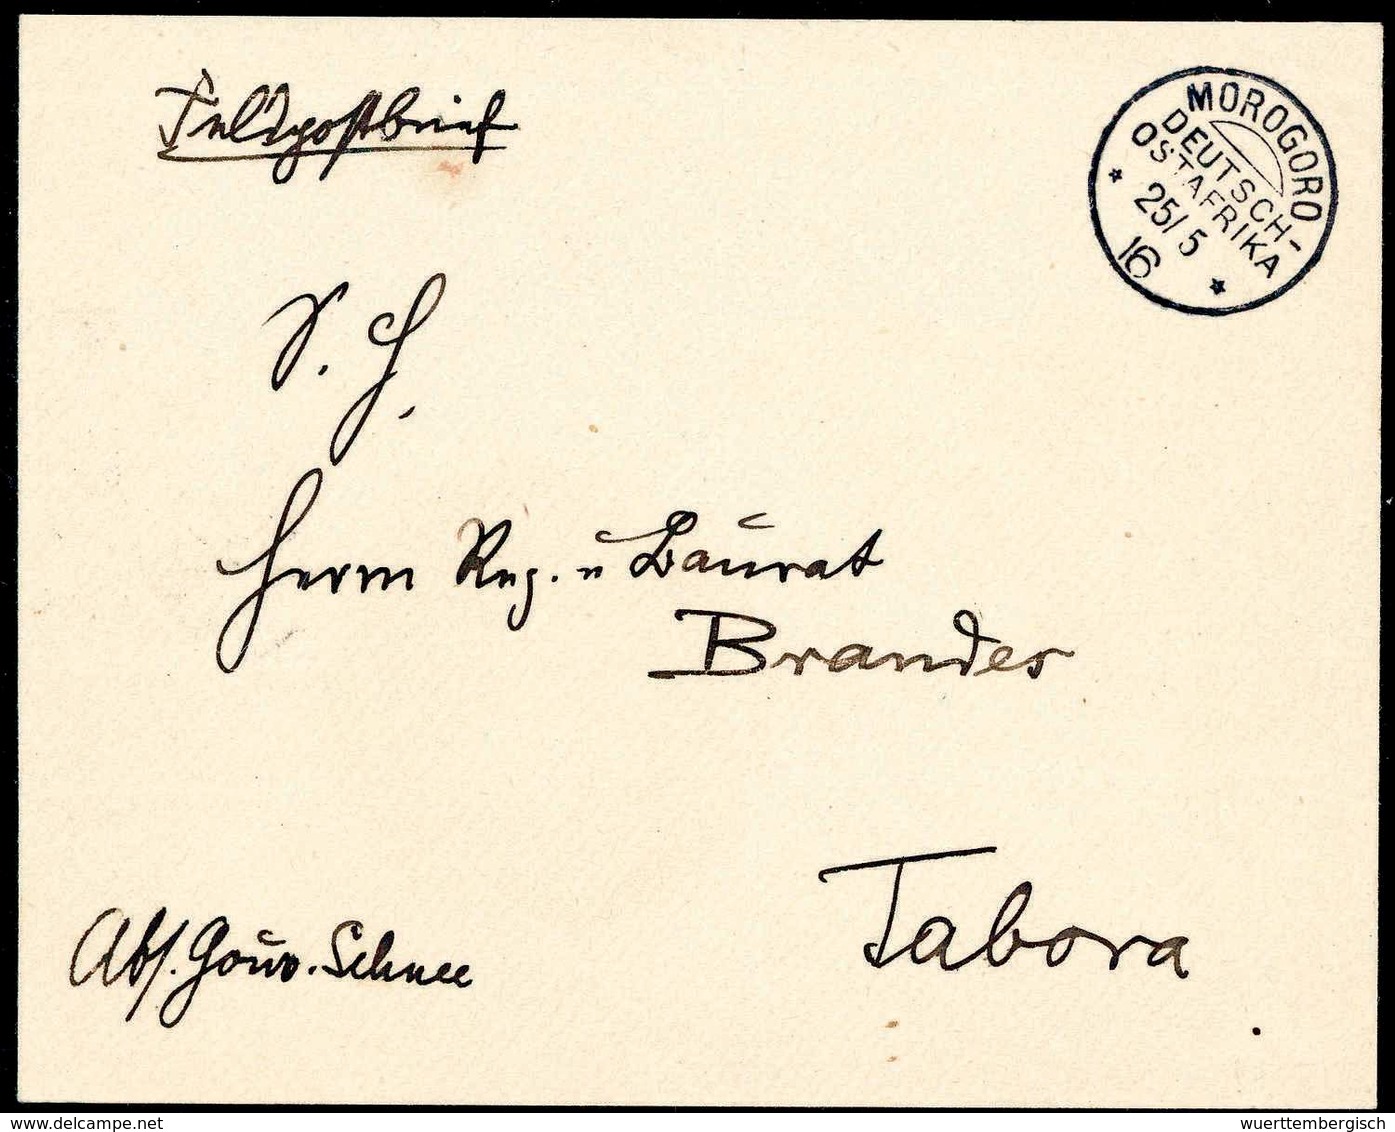 Feldpostbrief
MOROGORO
DEUTSCH-
OSTAFRIKA
* 25/5 *
16
S. H.
Herrn Reg. u Baurat
Brandes
Tabora
Abs. Gouv. Schnee
delcampe.net
wuerttembergisch